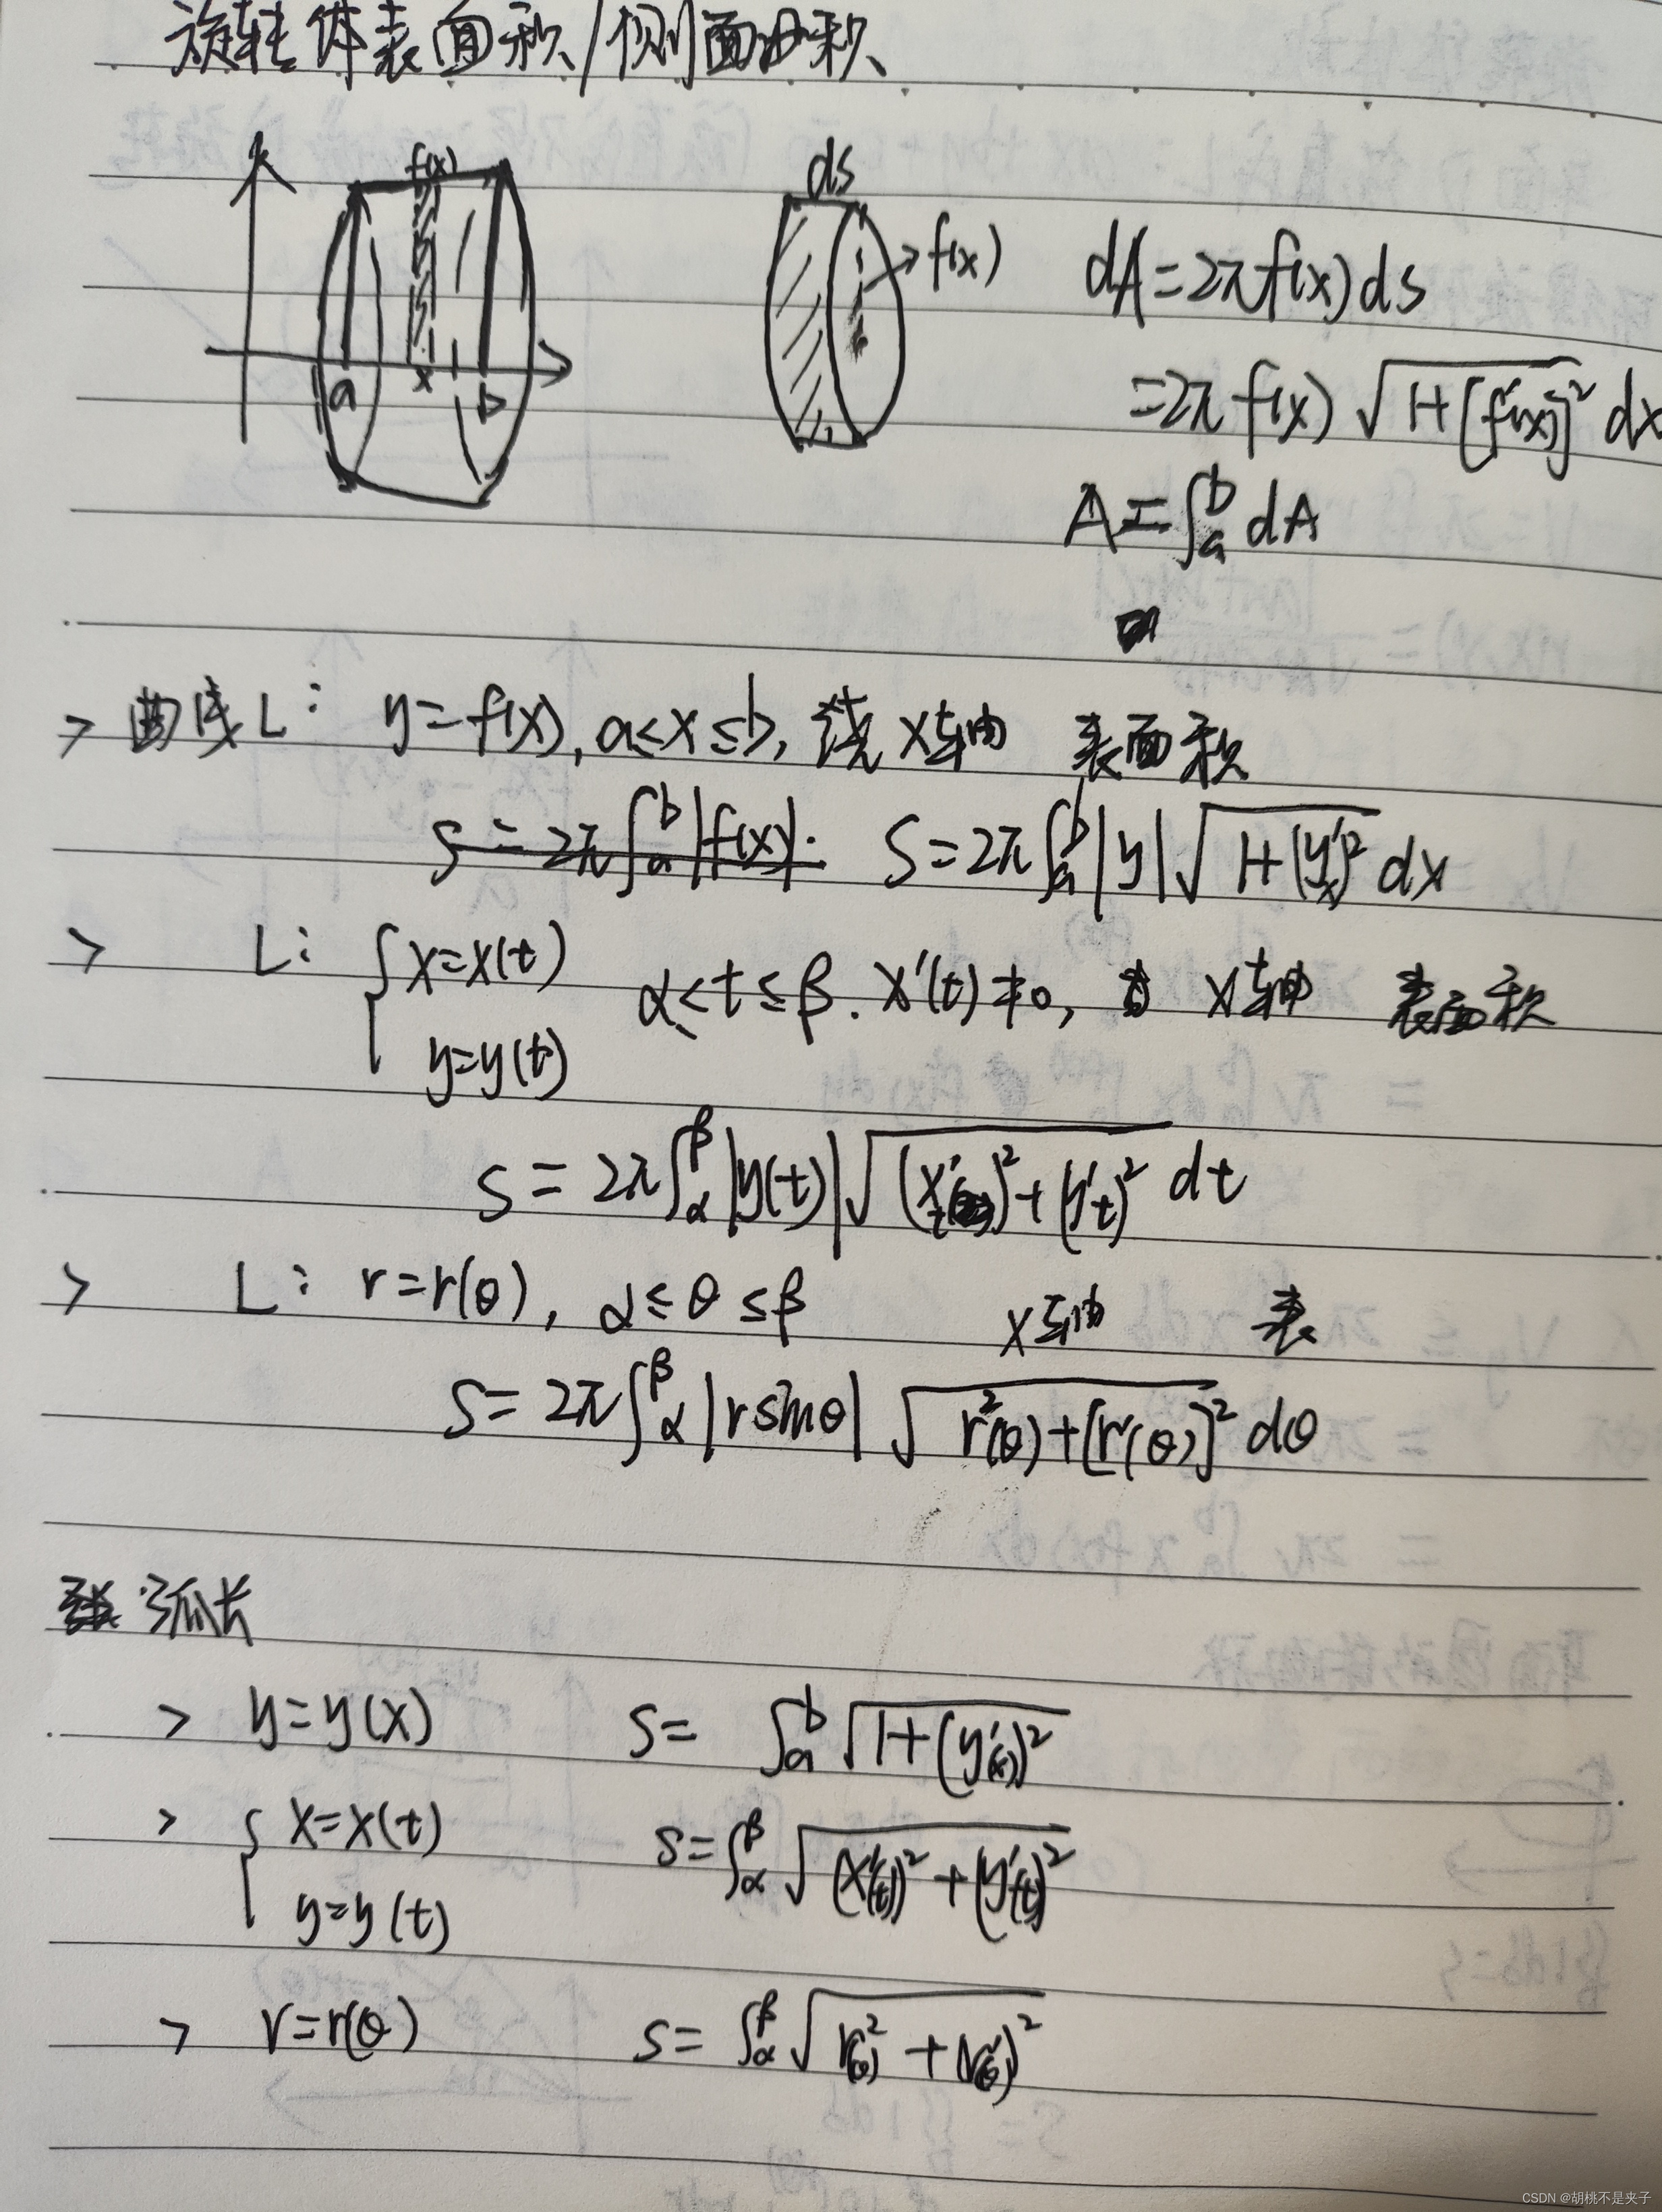 旋转体表面积/侧面积
f(x)
a
x
b
ds
f(x)
dA=2πf(x)ds
=2πf(x)√(1+[f'(x)]²) dx
A=∫ₐᵇ dA
> 曲线L: y=f(x), a≤x≤b, 绕x轴 表面积
S=2π∫ₐᵇ|f(x)|· S=2π∫ₐᵇ|y|√(1+(y'ₓ)²) dx
> L: { x=x(t) α≤t≤β. x'(t)≠0, x轴 表面积
y=y(t)
S=2π∫_α^β |y(t)|√((x'ₜ)²+(y'ₜ)²) dt
> L: r=r(θ), α≤θ≤β x轴 表
S=2π∫_α^β |r sinθ| √(r²(θ)+[r'(θ)]²) dθ
弧长
> y=y(x) S= ∫ₐᵇ √(1+(y'(x))²)
> { x=x(t) S=∫_α^β √((x'(t))²+(y'(t))²)
y=y(t)
> r=r(θ) S= ∫_α^β √(r(θ)²+(r'(θ))²)
CSDN @胡桃不是夹子